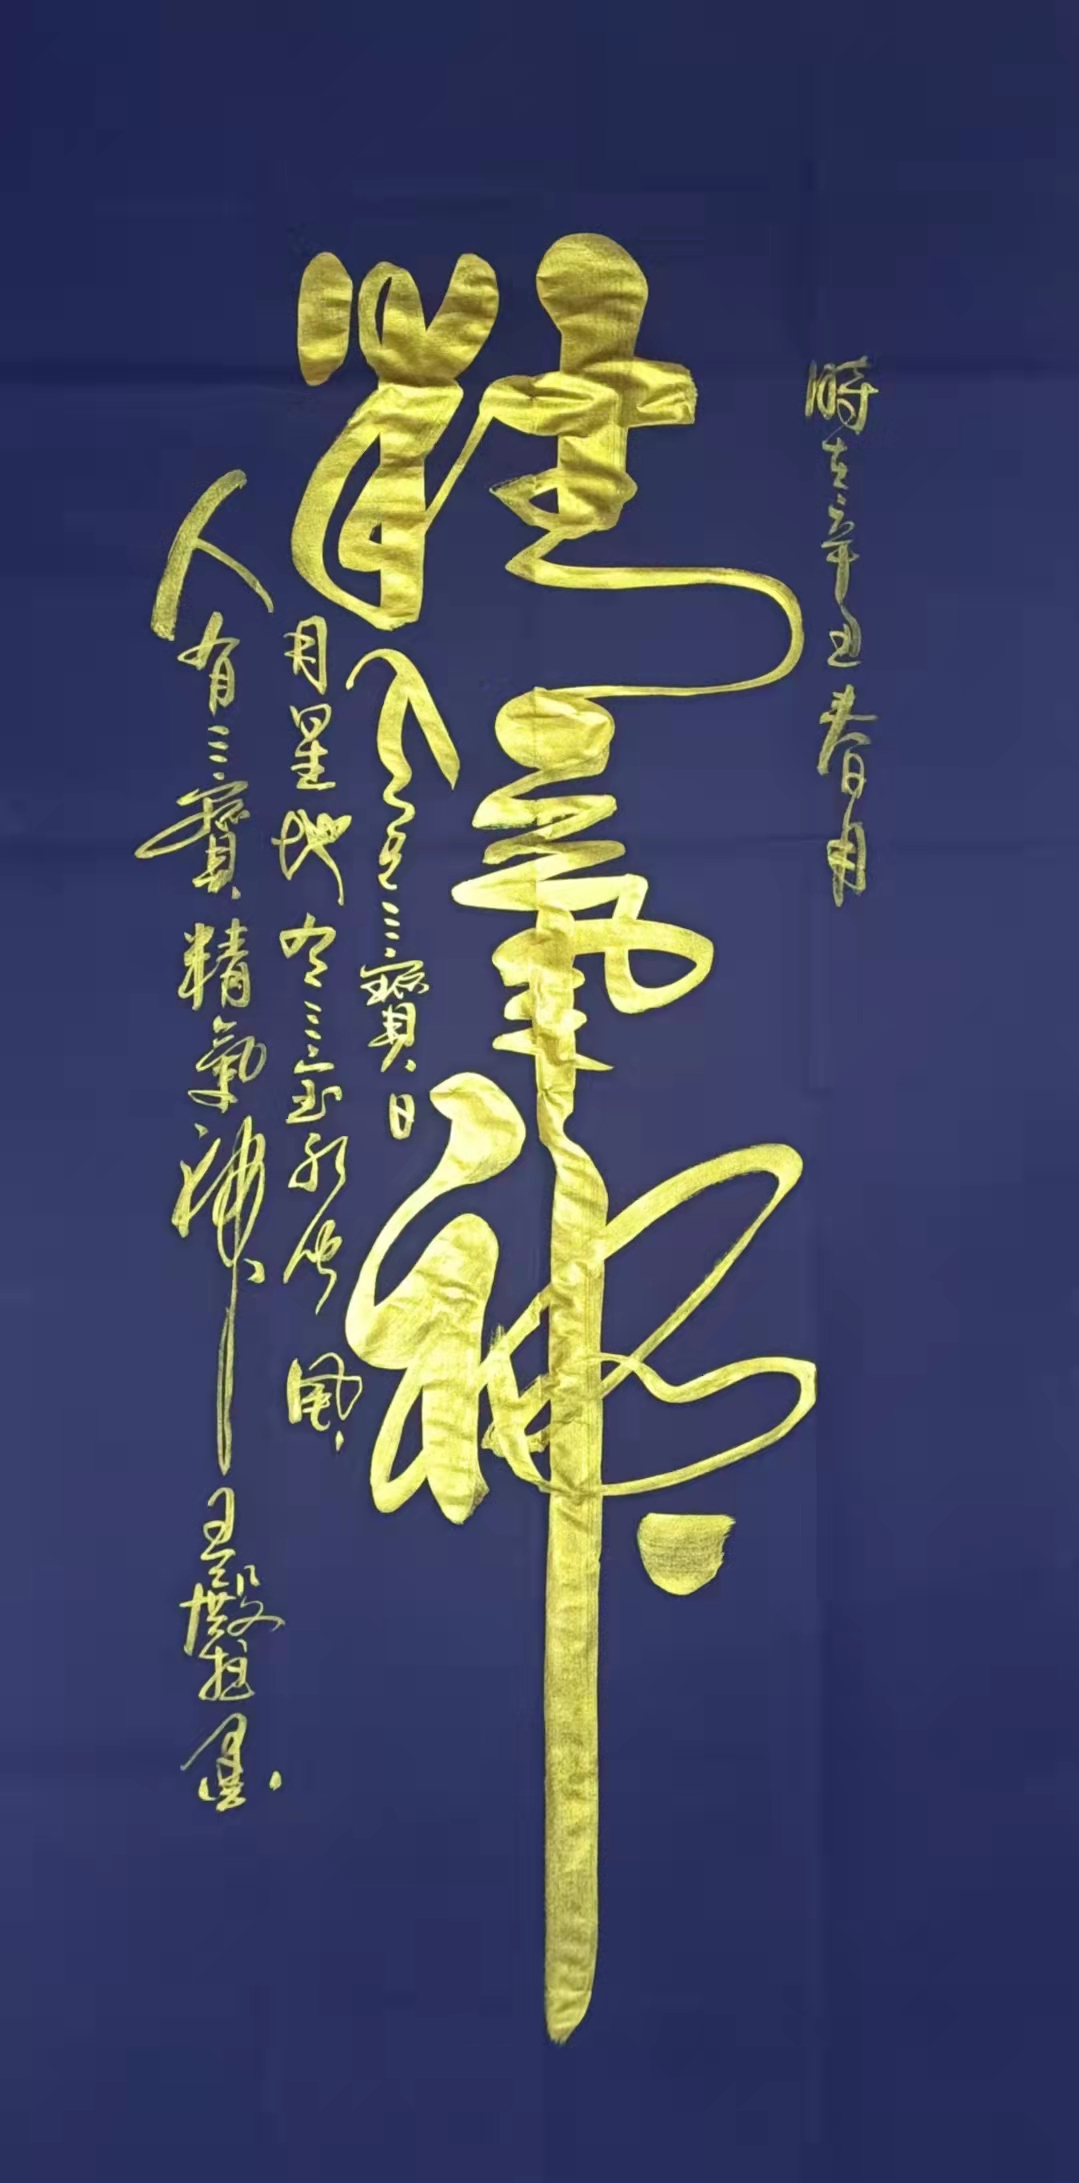 時在辛丑春月
精氣神
天有三寶日
月星地有三宝水火風
人有三寶精氣神 王